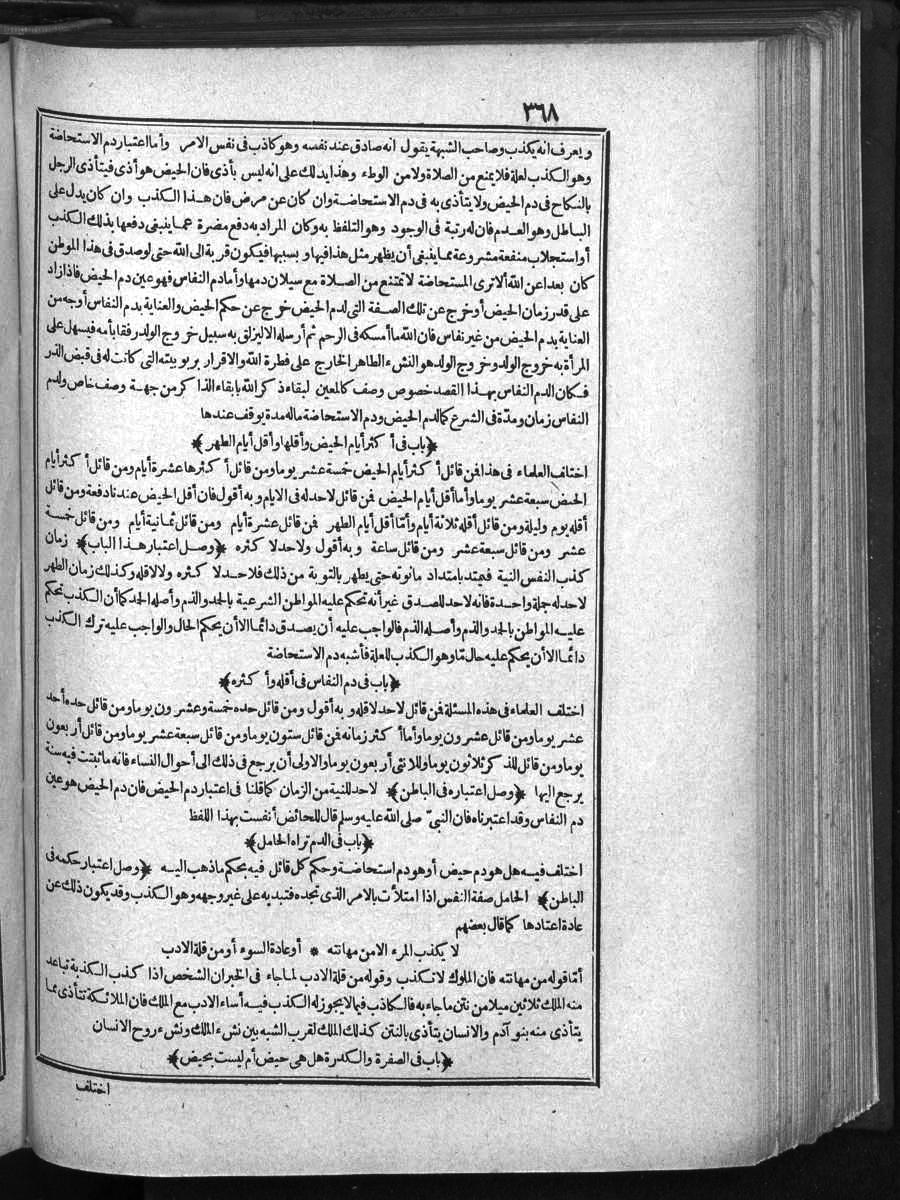 ٣٦٨
ويعرف انه يكذب وصاحب الشبهة يقول انه صادق عند نفسه وهو كاذب فى نفس الامر وأما اعتبار دم الاستحاضة
وهو الكذب لعلة فلا يمنع من الصلاة ولا من الوطء وهذا يدلك على انه ليس بأذى فان الحيض هو أذى فيتأذى الرجل
بالنكاح فى دم الحيض ولا يتأذى به فى دم الاستحاضة وان كان عن مرض فان هذا الكذب وان كان يدل على
الباطل وهو العدم فان له رتبة فى الوجود وهو التلفظ به وكان المراد به دفع مضرة عما ينبغى دفعها بذلك الكذب
أو استجلاب منفعة مشروعة مما ينبغى أن يظهر مثل هذا فيها وبسببها فيكون قربة الى الله حتى لو صدق فى هذا الموطن
كان بعدا عن الله ألا ترى المستحاضة لا تمتنع من الصلاة مع سيلان دمها وأما دم النفاس فهو عين دم الحيض فاذا زاد
على قدر زمان الحيض أو خرج عن تلك الصفة التى لدم الحيض خرج عن حكم الحيض والعناية بدم النفاس أوجه من
العناية بدم الحيض من غير نفاس فان الله ما أمسكه فى الرحم ثم أرسله الا ليزلق به سبيل خروج الولد رفقا بأمه فيسهل على
المرأة به خروج الولد وخروج الولد هو النشء الطاهر الخارج على فطرة الله والاقرار بربوبيته التى كانت له فى قبض الذر
فكان الدم النفاس بهذا القصد خصوص وصف كالمعين لبقاء ذكر الله بابقاء الذاكر من جهة وصف خاص ولدم
النفاس زمان ومدّة فى الشرع كما لدم الحيض ودم الاستحاضة ماله مدة يوقف عندها
﴿باب فى أكثر أيام الحيض وأقلها وأقل أيام الطهر﴾
اختلف العلماء فى هذا فمن قائل أكثر أيام الحيض خمسة عشر يوما ومن قائل أكثرها عشرة أيام ومن قائل أكثر أيام
الحيض سبعة عشر يوما وأما أقل أيام الحيض فمن قائل لا حد له فى الايام وبه أقول فان أقل الحيض عندنا دفعة ومن قائل
أقله يوم وليلة ومن قائل أقله ثلاثة أيام وأمّا أقل أيام الطهر فمن قائل عشرة أيام ومن قائل ثمانية أيام ومن قائل خمسة
عشر ومن قائل سبعة عشر ومن قائل ساعة وبه أقول ولا حد لا كثره ﴿وصل اعتبار هذا الباب﴾ زمان
كذب النفس النية فيمتد بامتداد مانوته حتى يطهر بالتوبة من ذلك فلا حد لا كثره ولا لاقله وكذلك زمان الطهر
لا حد له جملة واحدة فانه لا حد للصدق غير أنه تحكم عليه المواطن الشرعية بالحد والذم وأصله الحد كما أن الكذب تحكم
عليه المواطن بالحد والذم وأصله الذم فالواجب عليه أن يصدق دائما الا أن يحكم الحال والواجب عليه ترك الكذب
دائما الا أن يحكم عليه حال مّا وهو الكذب للعلة فأشبه دم الاستحاضة
﴿باب فى دم النفاس فى أقله وأكثره﴾
اختلف العلماء فى هذه المسئلة فمن قائل لا حد لاقله وبه أقول ومن قائل حده خمسة وعشرون يوما ومن قائل حده أحد
عشر يوما ومن قائل عشرون يوما وأما أكثر زمانه فمن قائل ستون يوما ومن قائل سبعة عشر يوما ومن قائل أربعون
يوما ومن قائل للذكر ثلاثون يوما وللانثى أربعون يوما والاولى أن يرجع فى ذلك الى أحوال النساء فانه ما ثبتت فيه سنة
يرجع اليها ﴿وصل اعتباره فى الباطن﴾ لا حد للنية من الزمان كما قلنا فى اعتبار دم الحيض فان دم الحيض هو عين
دم النفاس وقد اعتبرناه فان النبىّ صلى الله عليه وسلم قال للحائض أنفست بهذا اللفظ
﴿باب فى الدم تراه الحامل﴾
اختلف فيه هل هو دم حيض أو هو دم استحاضة وحكم كل قائل فيه بحكم ما ذهب اليه ﴿وصل اعتبار حكمه فى
الباطن﴾ الحامل صفة النفس اذا امتلأت بالامر الذى تجده فتبديه على غير وجهه وهو الكذب وقد يكون ذلك عن
عادة اعتادها كما قال بعضهم
لا يكذب المرء الا من مهانته * أو عادة السوء أو من قلة الادب
أمّا قوله من مهانته فان الملوك لا تكذب وقوله من قلة الادب لما جاء فى الخبران الشخص اذا كذب الكذبة تباعد
منه الملك ثلاثين ميلا من نتن ما جاء به فالكاذب فيما لا يجوز له الكذب فيه أساء الادب مع الملك فان الملائكة تتأذى مما
يتأذى منه بنو آدم والانسان يتأذى بالنتن كذلك الملك لقرب الشبه بين نشء الملك ونشء روح الانسان
﴿باب فى الصفرة والكدرة هل هى حيض أم ليست بحيض﴾
اختلف